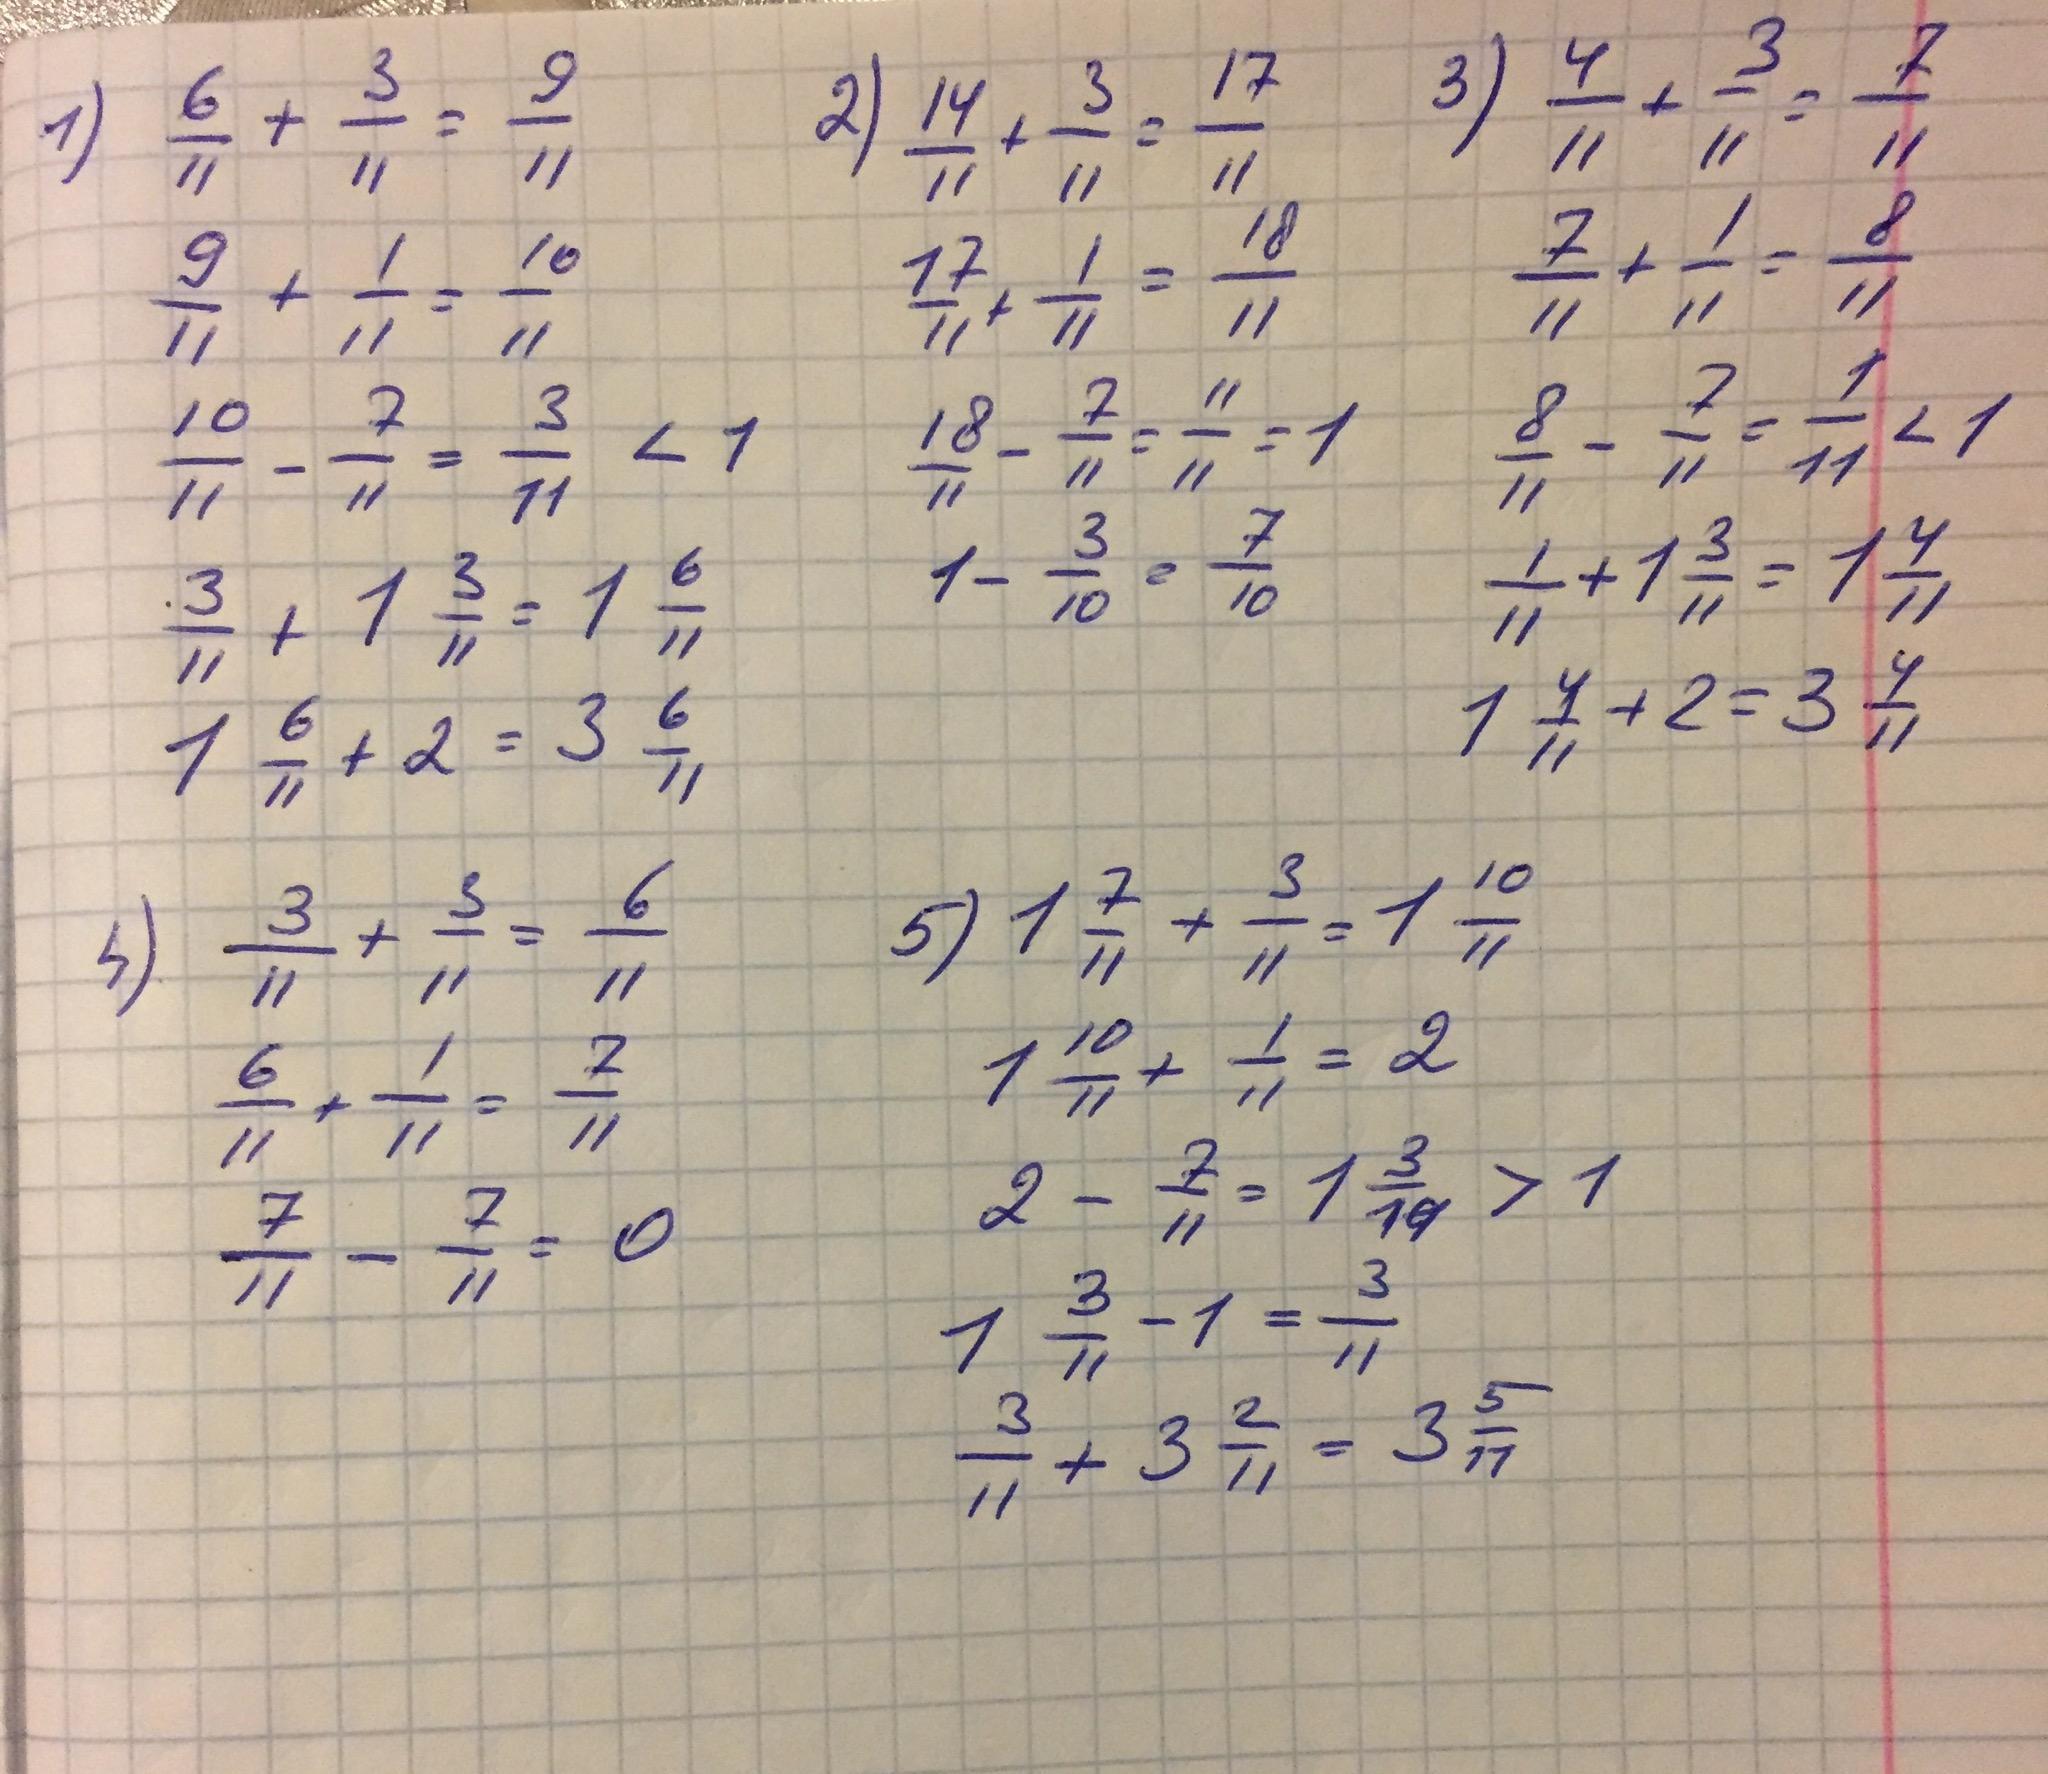 1) 6/11 + 3/11 = 9/11
9/11 + 1/11 = 10/11
10/11 - 7/11 = 3/11 < 1
3/11 + 1 3/11 = 1 6/11
1 6/11 + 2 = 3 6/11
2) 14/11 + 3/11 = 17/11
17/11 + 1/11 = 18/11
18/11 - 7/11 = 11/11 = 1
1 - 3/10 = 7/10
3) 4/11 + 3/11 = 7/11
7/11 + 1/11 = 8/11
8/11 - 7/11 = 1/11 < 1
1/11 + 1 3/11 = 1 4/11
1 4/11 + 2 = 3 4/11
4) 3/11 + 3/11 = 6/11
6/11 + 1/11 = 7/11
7/11 - 7/11 = 0
5) 1 7/11 + 3/11 = 1 10/11
1 10/11 + 1/11 = 2
2 - 7/11 = 1 3/10 > 1
1 3/11 - 1 = 3/11
3/11 + 3 2/11 = 3 5/11